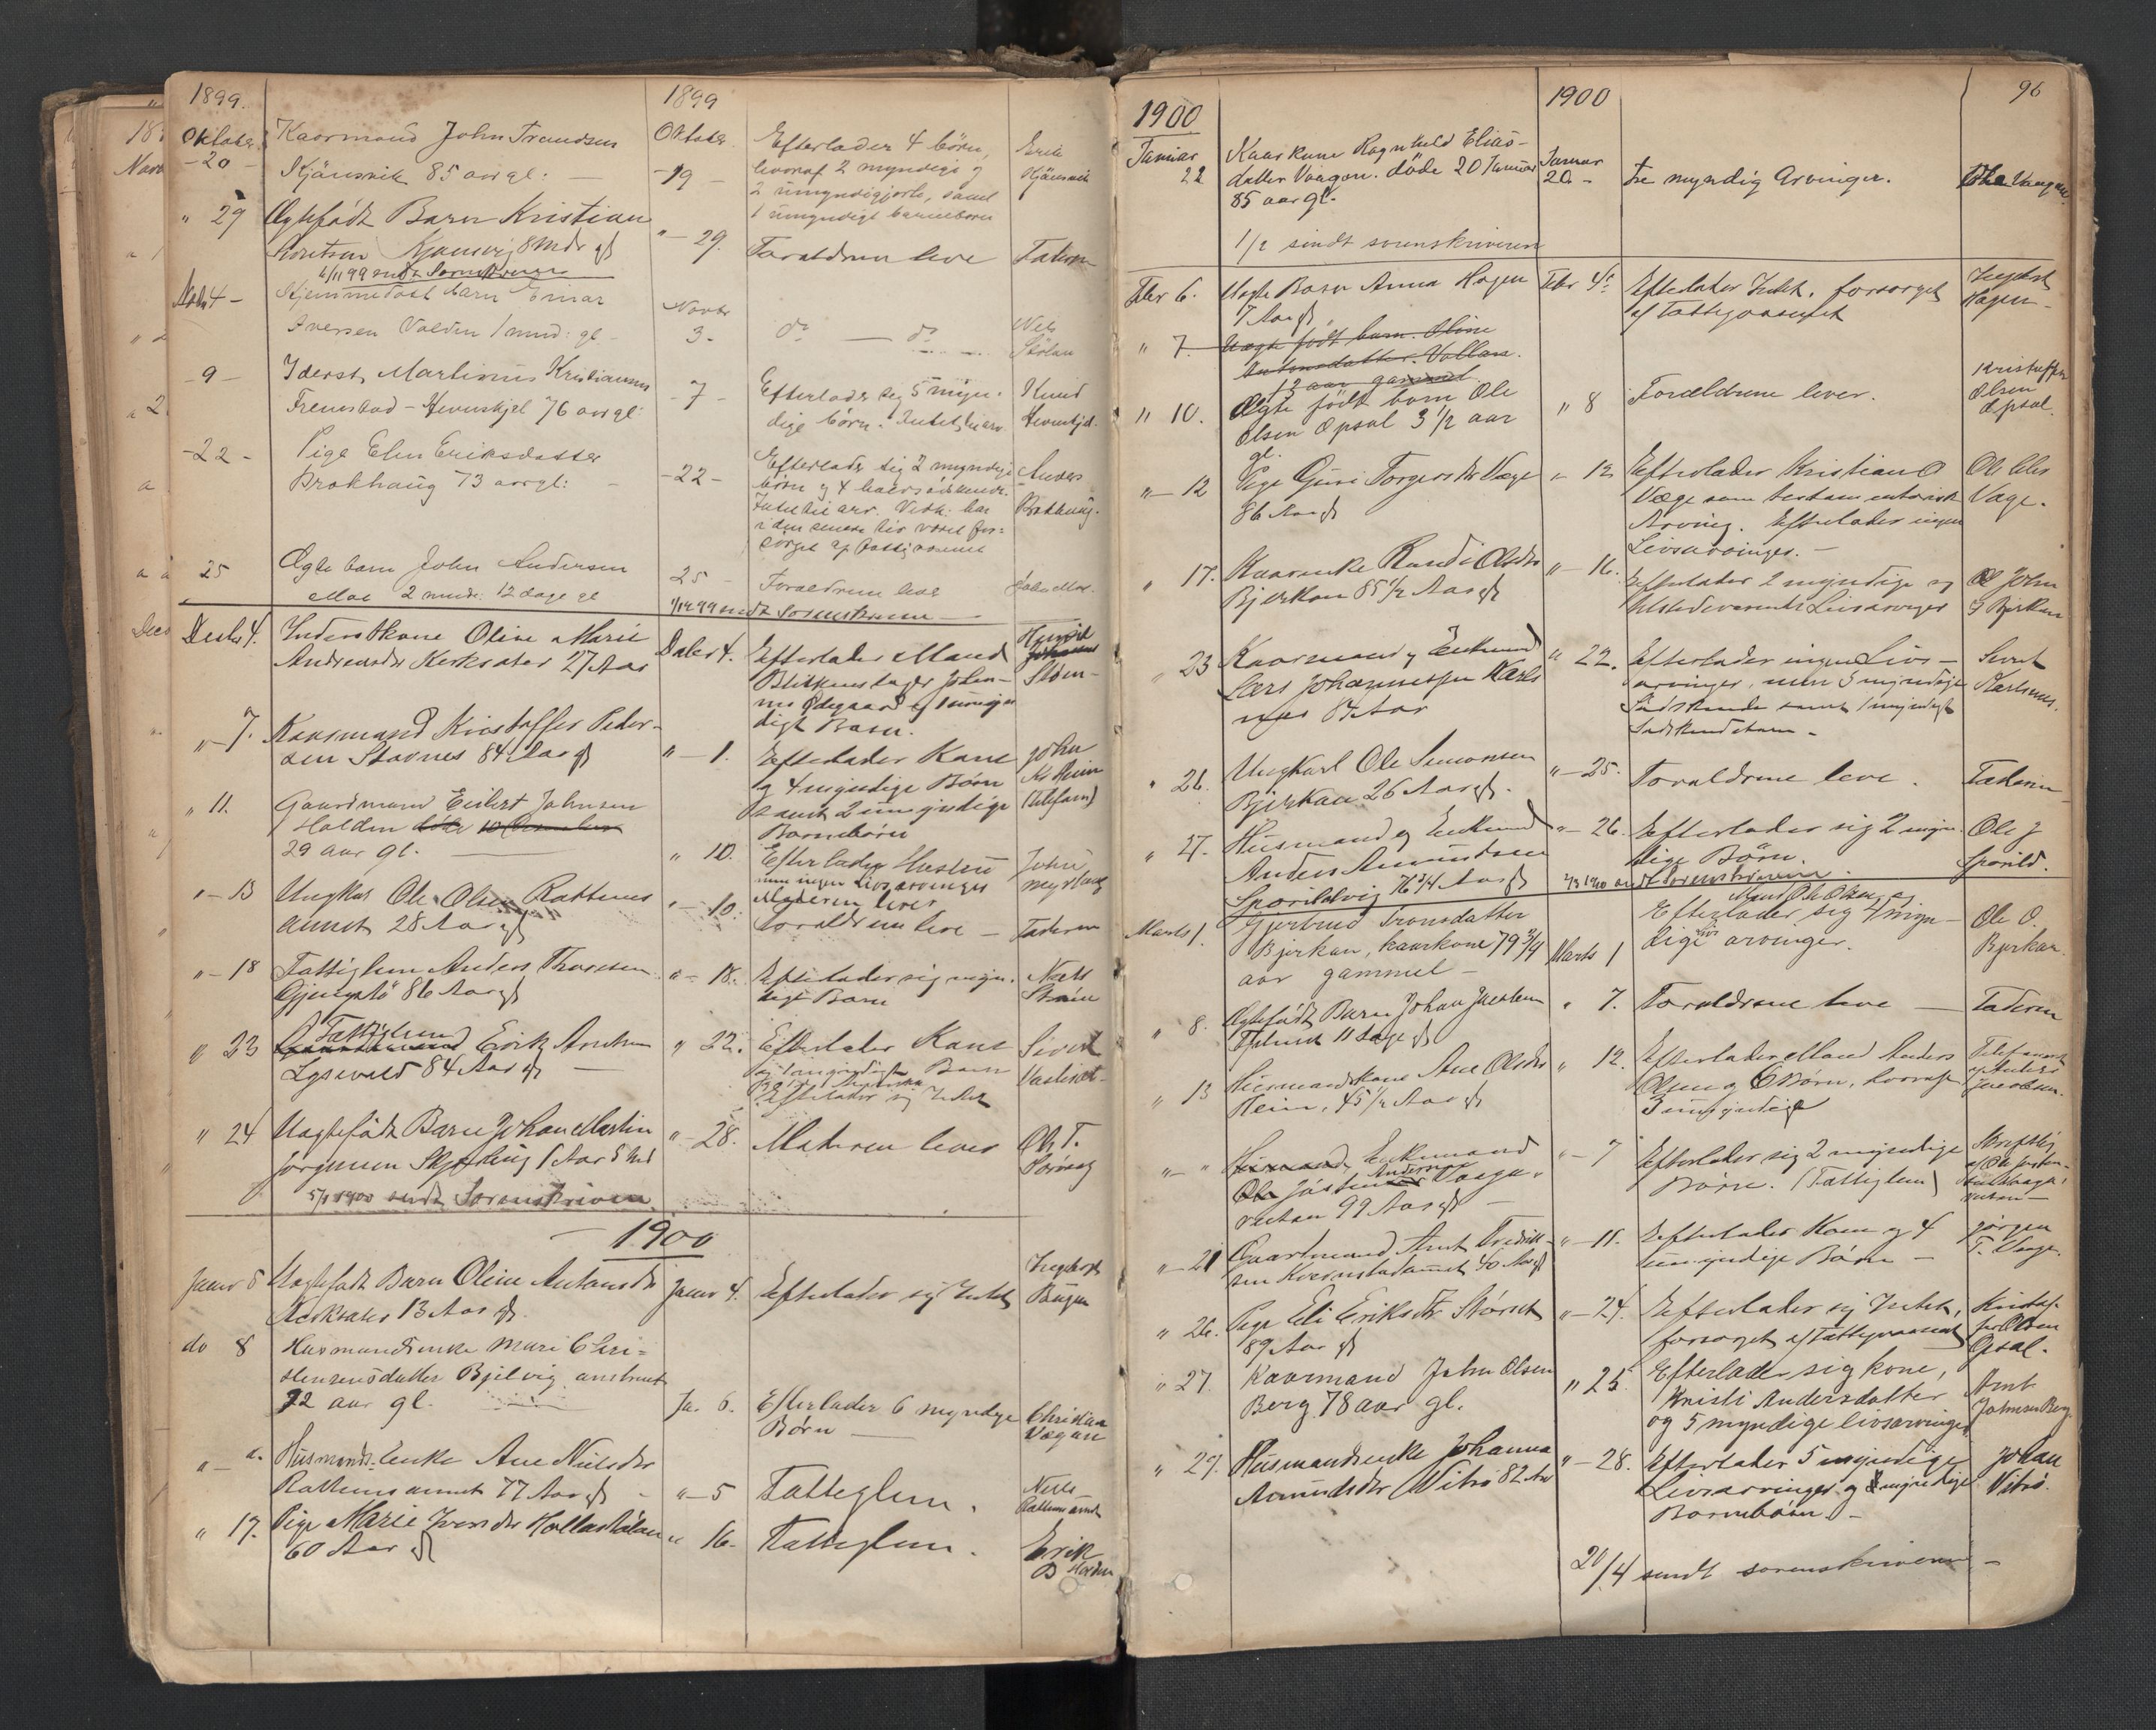 1899.
1899
Oktober
-20-
Kaarmand John Trondsen
Kjønsvik 85 aar gl: —
Oktober
-19-
Efterlader 4 børn,
hvoraf 2 myndige og
2 umyndiggjorte, samt
1 umyndigt barnebarn
Erik
Kjønsvik
" 29
Ægtefødt Barn Kristian
Kjønsvig 8 Mdr gl
6/11 99 sendt Sorenskriveren
"- 29.
Forældrene leve
Faderen
Novbr 4-
Hjemmedøbt barn Einar
Iversen Volden 1 mnd: gl -
Novbr
3.
do — do
Nils
Stølan
-9-
Iderst Martinus Kristiansen
Fremstad - Hevnskjel 76 aar gl:
-7-
Efterlader sig 5 myn-
dige børn. Intet til arv
Knud
Hevnskjel.
-22-
Pige Elen Eriksdatter
Brokhaug 73 aar gl:
-22-
Efterlader sig 2 myndige
børn og 4 halvsødskende.
Intet til arv. Vedk: har
i den senere tid været for-
sørget af fattigvæsenet
Anders
Brokhaug.
25
Ægte barn John Andersen
Moe 2 mndr. 12 dage gl
25 -
Forældrene leve
John Moe.
1/12 99 sendt Sorenskriveren —
Decbr 4.
Inderstkone Oline Marie
Andreasdr Kirksæter 27 Aar
Decbr 4.
Efterlader Mand
Blikkenslager Johan-
nes Ødegaard og 1 umyn
digt Barn.
Henrik
Johannes
Strøm-
"- 7.
Kaarmand Kristoffer Peder-
sen Stavnes 84 Aar gl
"- 1.
Efterlader Kone
og 4 myndige Børn
samt 2 umyndige
Barnebørn
John
Ks Heim
(Telefonr)
" 11.
Gaardmand Eilert Johnsen
Holden døde 10 December
29 aar gl. —
" 10.
Efterlader Hustru
men ingen Livsarvinger
Moderen lever
John
Myrhaug
"- 13
Ungkar Ole Olsen Rottems
annet 28 Aar gl
"- 10.
Forældrene leve —
Faderen
"- 18
Fattiglem Anders Thoresen
Gjengstø 86 Aar gl
"- 18.
Efterlader sig myn.
digt Barn
Nils
Strøm
" 23
Fattiglem
Gaardmand Erik Arntsen
Lysevold 84 Aar gl —
" 22.
Efterlader Kone
og 1 umyndigt Barn
Efterlader sig Intet
Sivert
" 24
Uægtefødt Barn Johan Martin
Jørgensen 1 Aar 5 Md
5/1 1900 sendt Sorenskriveren
"- 28.
Moderen lever
Ole T.
1900
Januar 5
Uægtefødt Barn Oline Antonsdr
Kirksæter 13 Aar gl.
Januar 4.
Efterlader sig Intet
Ingebrigt
Bugen
do 8
Husmandsenke Mari Chri-
stensensdatter Bjelvig
72 aar gl.
Ja. 6.
Efterlader 6 myndige
Børn —
Christian
Vægan
"- "
Husmands-Enke Ane Nielsdr
Rottemsannet 77 Aar gl -
"- 5
Fatteglem.
Niels
Rottemsannet
" 17.
Pige Marie Iversdr Hollastølan
60 Aar gl
" 16.
Fatteglem.
Erik
B Holden
96
1900
1900
Januar
22
Kaarkone Ragnhild Elias-
datter Vaagan. døde 20 Januar
85 aar gl.
Januar
20 -
Tre myndig Arvinger.
Ole Vaagan.
1/2 sendt sorenskriveren
Febr 6.
Uægte Barn Anna Hagen
7 Aar gl
Febr 4de
Efterlader Intet, forsørget
af Fattigvæsenet
Ingebrigt
Hagen-
" 7.
Uægte født barn. Oline
Antonsdatter. Vollan.
13 aar gammel.
" 10.
Ægte født barn Ole
Olsen Opsal 3 1/2 aar
gl.
" 8
Forældrene lever.
Kristoffer
Olsen
Opsal.
"- 12
Pige Guri Torgersdr Væge
86 Aar gl
"- 12
Efterlader Kristian O
Væge som testamentarisk
Arving. Efterlader ingen
Livsarvinger. —
Væge.
" 17.
Kaarenke Randi Olsdr
Bjerkan 85 1/2 Aar gl
"- 16.
Efterlader 2 myndige og
tilstedeværende Livsarvinger
John
G Bjerkan
" 23
Kaarmand og Enkemand
Lars Johannessen Karls
nes 87 Aar
" 22.
Efterlader ingen Livs-
arvinger, men 3 myndige
Sødskende samt 1 myndigt
Sødskendebarn.
Sivert
Karlsnes.
" 26.
Ungkarl Ole Simonsen
Bjerkan 26 Aar gl.
"- 25.
Forældrene leve.
Faderen
" 27.
Husmand og Enkemand
Anders Amundsen
Sporildvig 76 3/4 Aar gl
"- 26.
Efterlader sig 2 myn-
dige Børn.
Ole J
Sporild.
2/3 1900 sendt Sorenskriveren.
Marts 1.
Gjertrud Tronsdatter
Bjerkan, kaarkone 79 3/4
aar gammel —
Marts 1
Mand Ole Olsen, og
Efterlader sig 4 myn-
dige livsarvinger.
Ole O.
Bjerkan.
" 8.
Ægtefødt Barn Johan Jacobsen
11 Dage gl
" 7.
Forældrene leve —
Faderen
" 13
Husmandskone Ane Olsdr
Heim, 45 1/2 Aar gl
" 12.
Efterlader Mand Anders
Olsen og 6 Børn, hvoraf
3 umyndige
Anders
Jacobsen.
"- "
Enkemand
Ole Justensen Anders Vaagan
99 Aar gl —
"- 7
Efterlader sig 2 myndige
Børn. (Fattiglem)
Skriftlig
"- 21
Gaardmand Arnt Fredrik-
sen Kvernstadannet 40 Aar gl
"- 11.
Efterlader Kone og 4
umyndige Børn —
Jørgen
T. Væge.
" 26.
Pige Eli Eriksdr Størset
89 Aar gl
"- 24.
Efterlader sig Intet,
forsørget af Fattigvæsenet
Kristof-
fer Olsen
Opsal.
" 27.
Kaarmand John Olsen
Berg 78 aar gl.
" 25.
Efterlader sig kone,
Kristi Andersdatter
og 5 myndige livsarvinger
Arnt
Johnsen Berg
" 29.
Husmandsenke Johanna
Amundsdr Vitsø 82 Aar
"- 28.
Efterlader 5 myndige
Livsarvinger og myndige
Barnebørn. -
Johan
Vitsø.
20/4 sendt sorenskriveren —